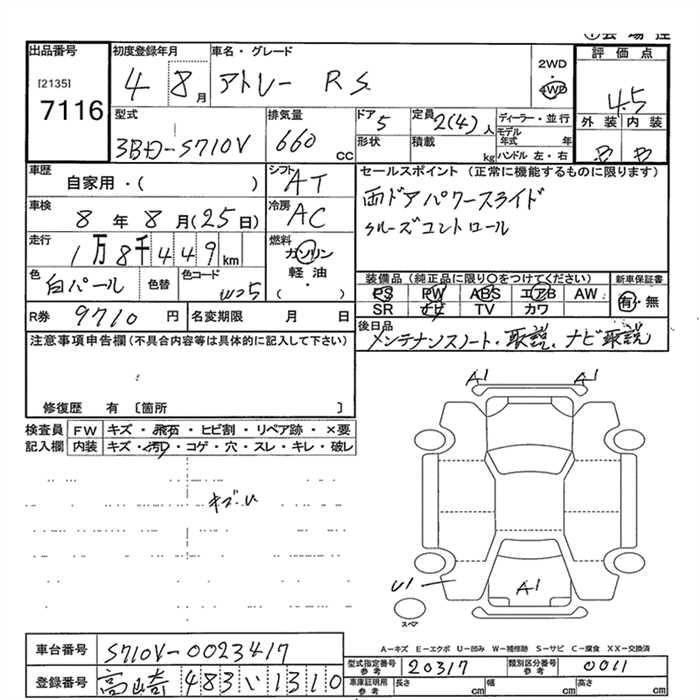 出品番号 初度登録年月 車名・グレード 評価点
[2135] 7116 4 8月 アトレー RS 2WD 4WD 4.5
型式 排気量 ドア 5 定員 2(4)人 ディーラー・並行 外装 内装
3BD-S710V 660 CC 形状 積載 kg モデル年式 年 B B
ハンドル 左・右
車歴 自家用・( ) シフト AT セールスポイント (正常に機能するものに限ります)
両ドアパワースライド
車検 8年8月(25日) 冷房 AC クルーズコントロール
走行 1万8千449km 燃料 ガソリン
軽油
・
( )
色 白パール 色替 色コード W25 装備品 (純正品に限り○をつけてください) 新車保証書
PS PW ABS エアB AW 有・無
SR ナビ TV カワ
R券 9710円 名変期限 月 日 後日品
メンテナンスノート・取説、ナビ取説
注意事項申告欄(不具合内容等は具体的に記入して下さい)
A1 A1
修復歴 有 〔箇所 〕
検査員 FW キズ・飛石・ヒビ割・リペア跡・×要
記入欄 内装 キズ・汚・コゲ・穴・スレ・キレ・破レ
キズ.U
U1 A1
スペア
A-キズ E-エクボ U-凹み W-補修跡 S-サビ C-腐食 XX-交換済
車台番号 S710V-0023417
型式指定番号 参考 20317 類別区分番号 参考 0011
登録番号 高崎 483 い 1310 車庫証明用 参考 長さ cm 幅 cm 高さ cm